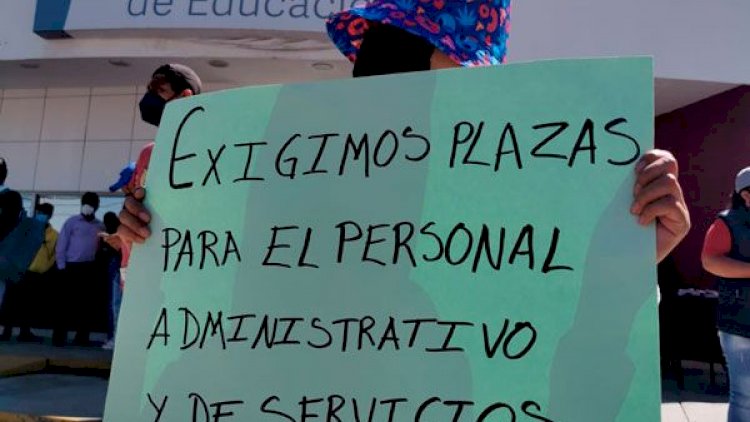 de Educació
EXIGIMOS PLAZAS
PARA EL PERSONAL
ADMINISTRATIVO
Y DE SERVICIOS